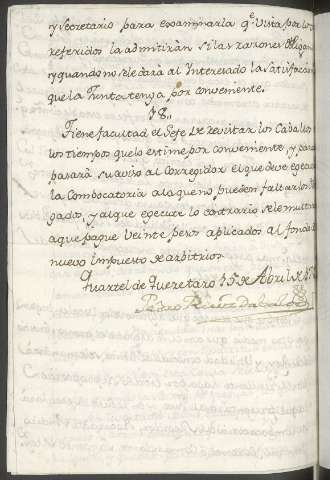 y Secretario para examinarla qᵉ Vista por los
referidos la admitiràn si las razones obligan
y quando no se le darà al Interesado la Satisfaccion
que la Junta tenga por conveniente.
18.,
Tiene facultad el Gefe de revistar los Caballos
los tiempos que lo estime por conveniente, y para
pasarà su aviso al Corregidor el que debe egecutar
la Combocatoria a la que no pueden faltar los
gados, y al que egecute lo contrario se le multarà
a que pague Veinte pesos aplicados al fondo
nuevo Impuesto de arbitrios.
Quartel de Queretaro 15 de Abril de
Pedro